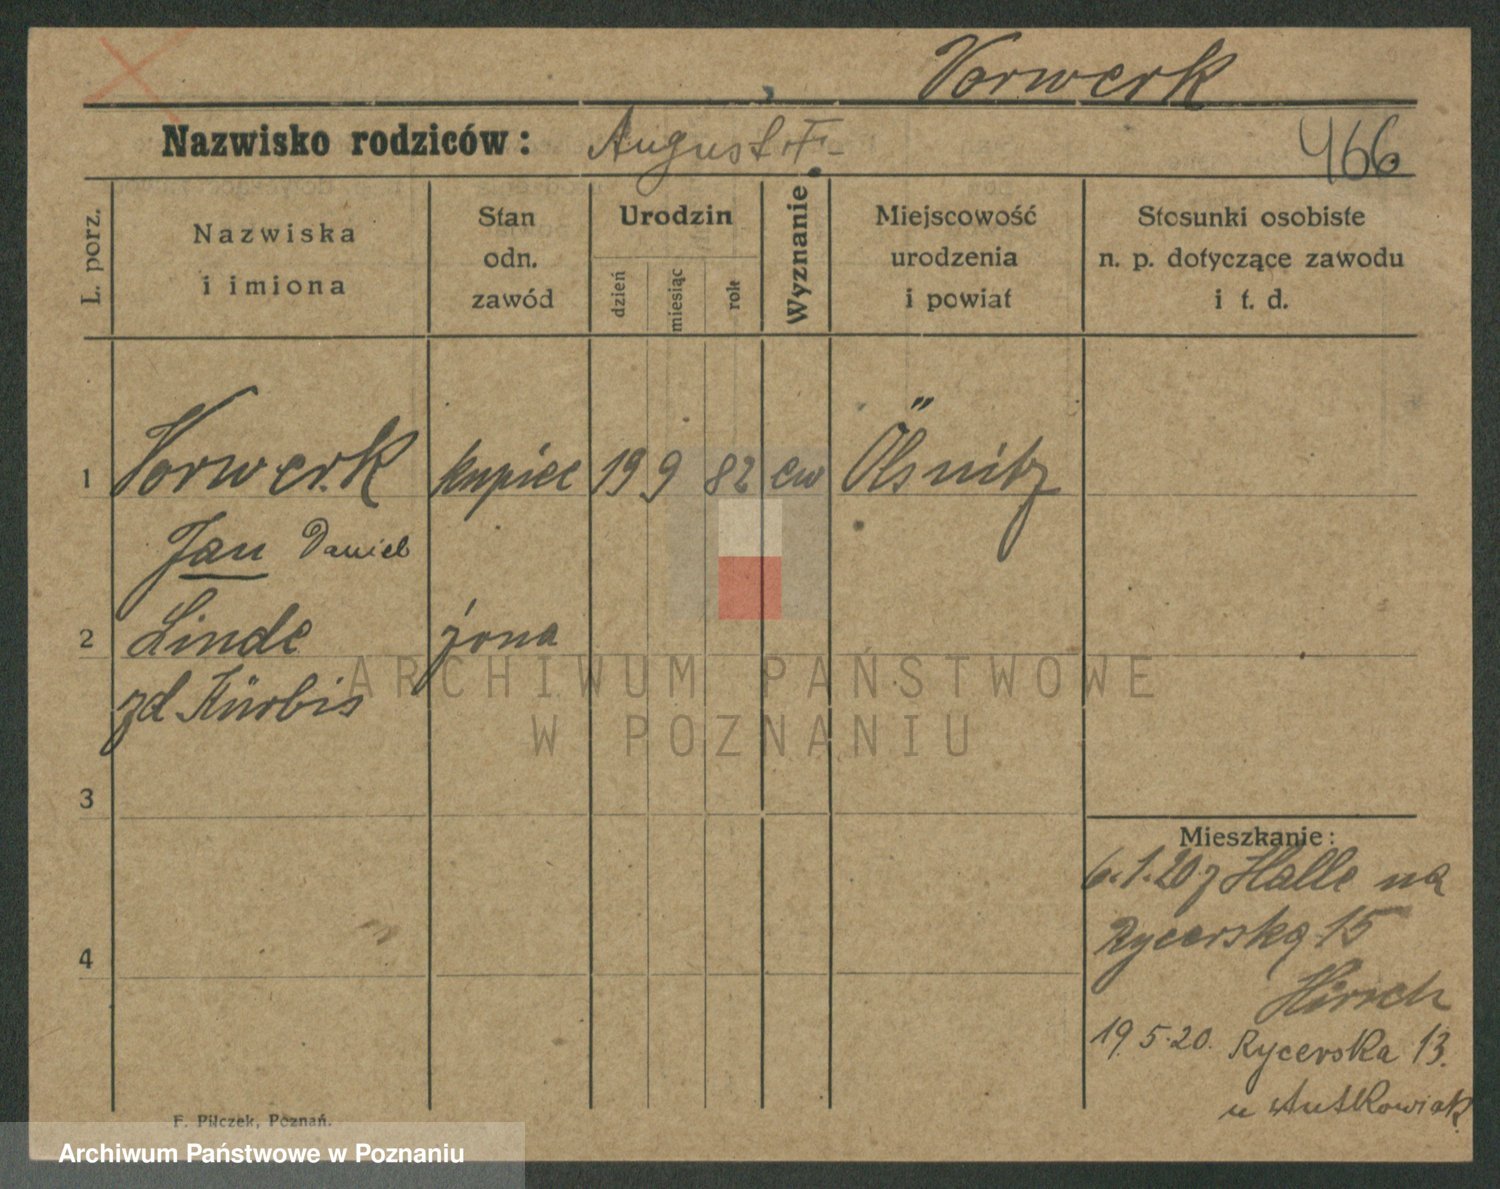 Vorwerk
Nazwisko rodziców: August
466
L. porz.
Nazwiska
i imiona
Stan
odn.
zawód
Urodzin
dzień
miesiąc
rok
Wyznanie
Miejscowość
urodzenia
i powiat
Stosunki osobiste
n. p. dotyczące zawodu
i t. d.
1 Vorwerk kupiec 19 9 82 ew Ölsnitz
Jan Daniel
2 Linde żona
zd. Kürbis
3
4
Mieszkanie:
6.1.20 z Halle na
Rycerską 15
Hirsch
19.5.20. Rycerska 13.
u Antkowiak
F. Pilczek, Poznań.
ARCHIWUM PAŃSTWOWE
W POZNANIU
Archiwum Państwowe w Poznaniu